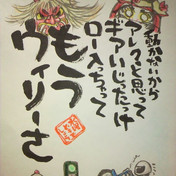 動かないから
アレクと思って
ギアいじったっけ
ロー入っちゃって
もう
ウィリーさ